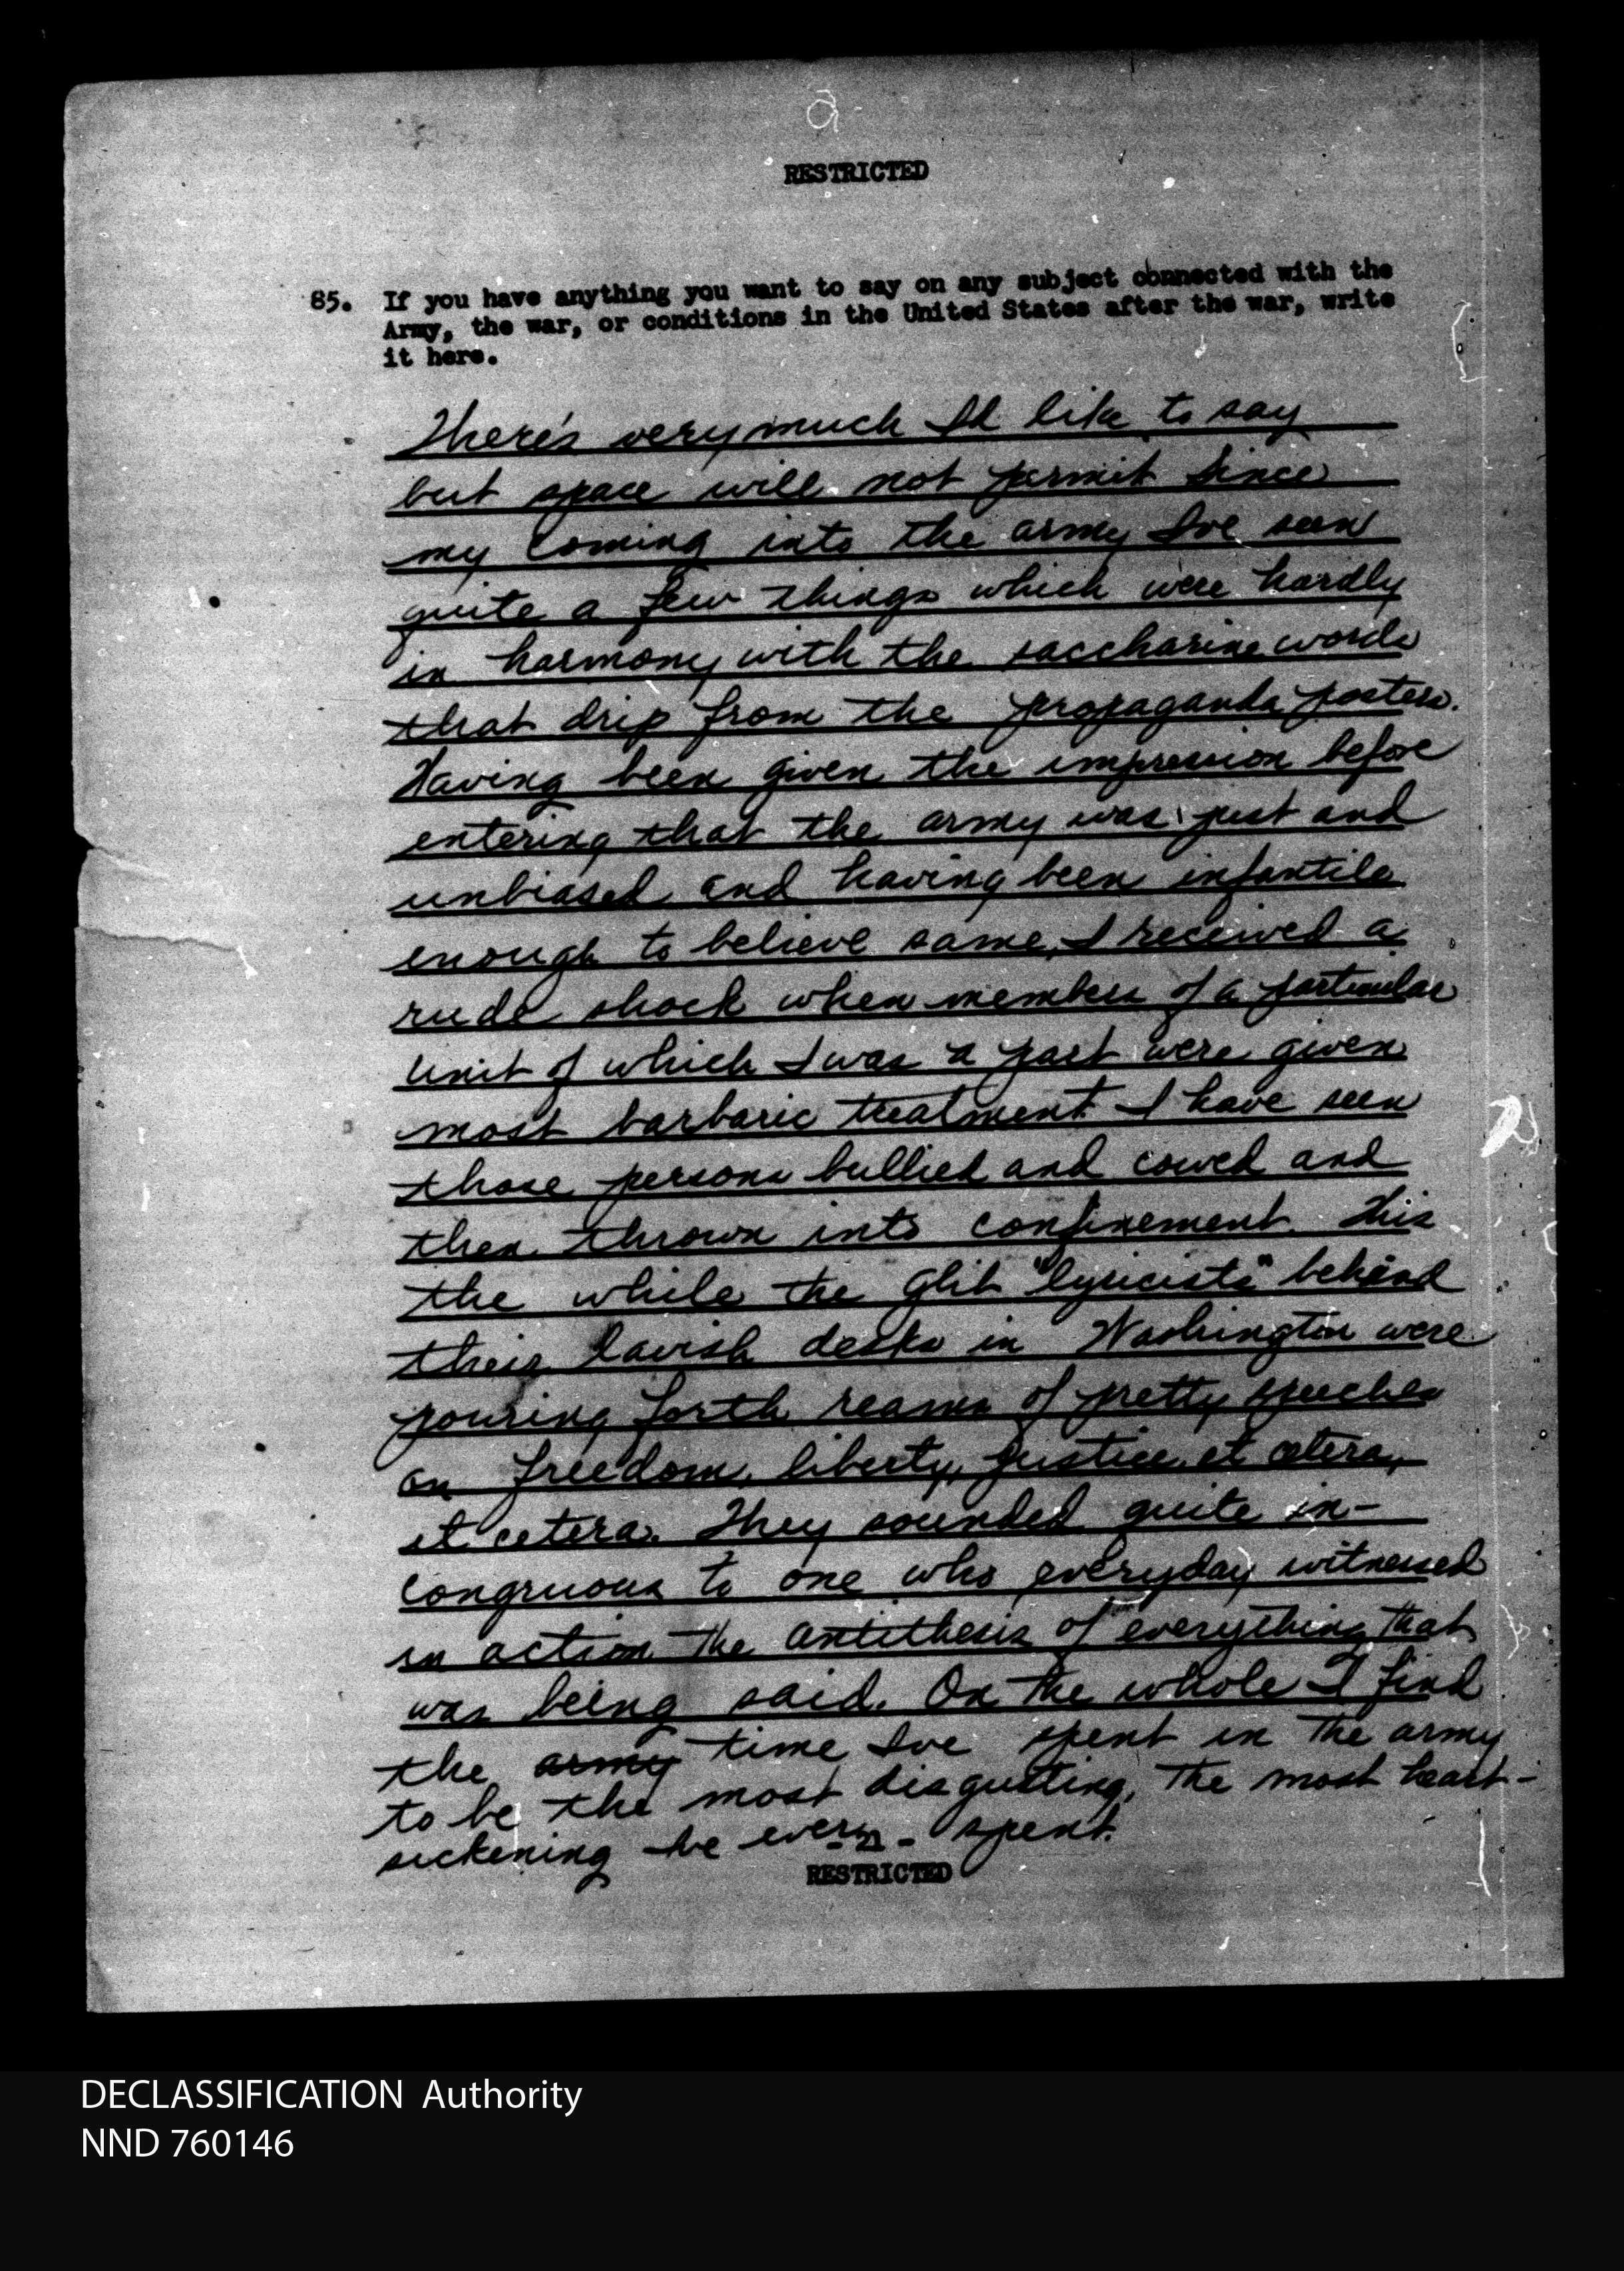 RESTRICTED
85. If you have anything you want to say on any subject connected with the
Army, the war, or conditions in the United States after the war, write
it here.
There's very much I'd like to say
but space will not permit Since
my coming into the army I've seen
quite a few things which were hardly
in harmony with the saccharine words
that drip from the propaganda posters.
Having been given the impression before
entering that the army was just and
unbiased and having been infantile
enough to believe same, I received a
rude shock when members of a particular
unit of which I was a part were given
most barbaric treatment. I have seen
those persons bullied and cowed and
then thrown into confinement. This
the while the glib "lyricists" behind
their lavish desks in Washington were
pouring forth reams of pretty speeches
on freedom, liberty, justice, et cetera,
et cetera. They sounded quite in-
congruous to one who everyday witnessed
in action the antithesis of everything that
was being said. On the whole I find
the army time I've spent in the army
to be the most disgusting, the most heart-
sickening I've ever spent.
RESTRICTED
DECLASSIFICATION Authority
NND 760146